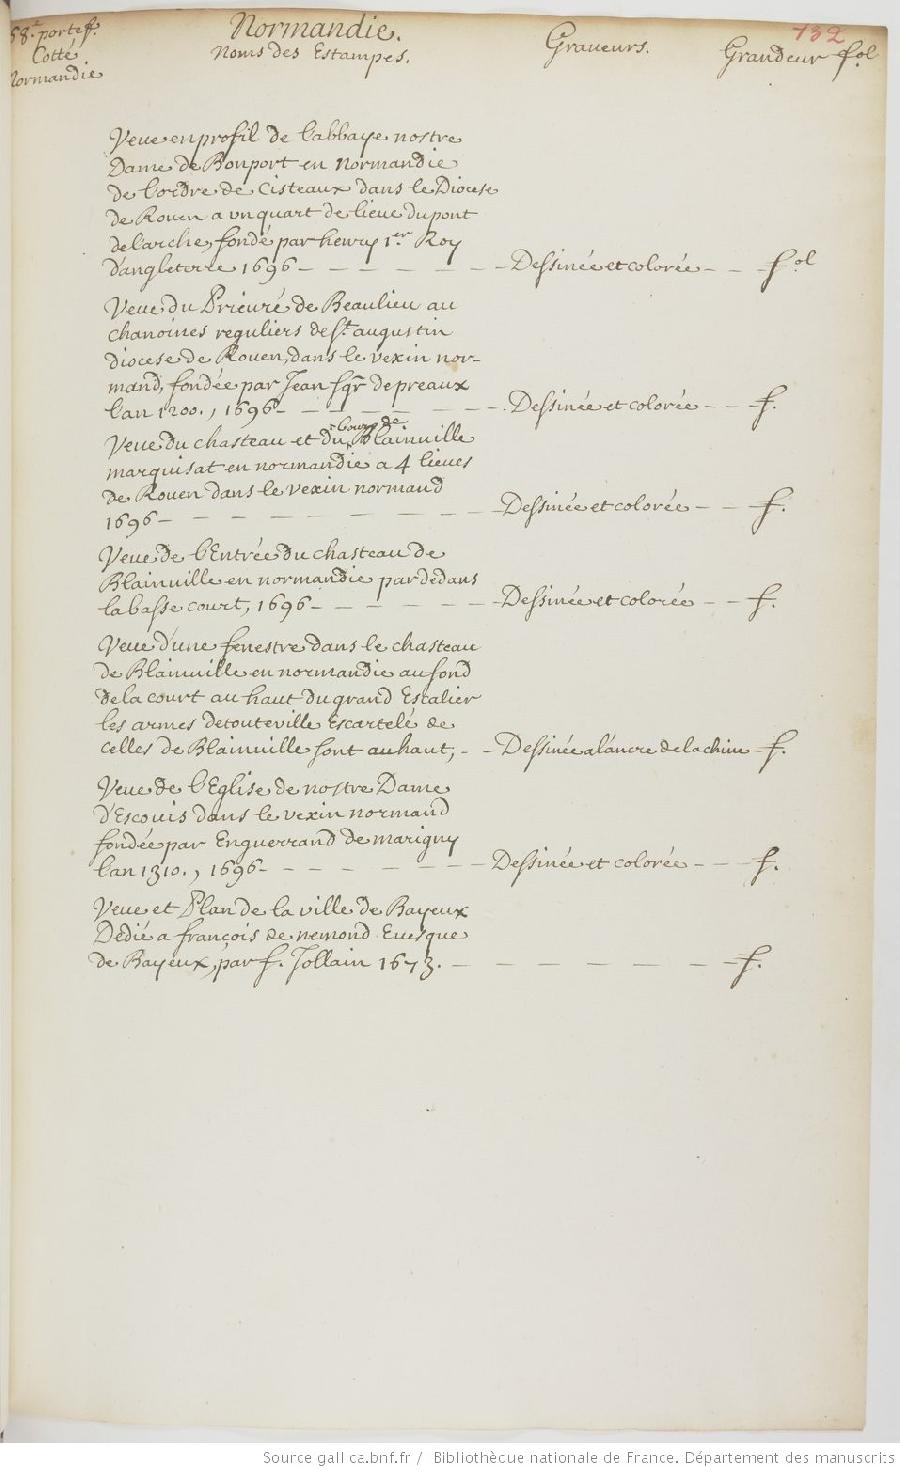 58.e portef.
Cotté
Normandie
Normandie.
Noms des Estampes.
Graveurs.
132
Grandeur fol
Veue en profil de l'abbaye nostre
Dame de Bonport en normandie
de l'ordre de Cisteaux dans le Diocese
de Rouen a un quart de lieue du pont
de l'arche, fondé par henry 1.er Roy
d'angleterre 1696 - - - - - - Dessinée et colorée - - fol
Veue du Prieuré de Beaulieu au
chanoines reguliers de st. augustin
diocese de Rouen, dans le vexin nor-
mand, fondée par Jean sgr de preaux
l'an 1200., 1696 - - - - - - Dessinée et colorée - - f.
Veue du chasteau et du bourg de Blainville
marquisat en normandie a 4 lieues
de Rouen dans le vexin normand
1696 - - - - - - - - Dessinée et colorée - - f.
Veue de l'Entrée du chasteau de
Blainville en normandie par dedans
la basse court, 1696 - - - - - Dessinée et colorée - - f.
Veue d'une fenestre dans le chasteau
de Blainville en normandie au fond
de la court au haut du grand Escalier
les armes detouteville Escartelé de
celles de Blainville sont au haut, - - Dessinée a l'ancre de la chine - f.
Veue de l'Eglise de nostre Dame
d'Escouis dans le vexin normand
fondée par Enguerrand de marigny
l'an 1310., 1696 - - - - - - Dessinée et colorée - - - f.
Veue et Plan de la ville de Bayeux
Dedié a françois de nemond Evesque
de Bayeux, par f. Jollain 1673. - - - - - - - f.
Source gallica.bnf.fr / Bibliothèque nationale de France. Département des manuscrits